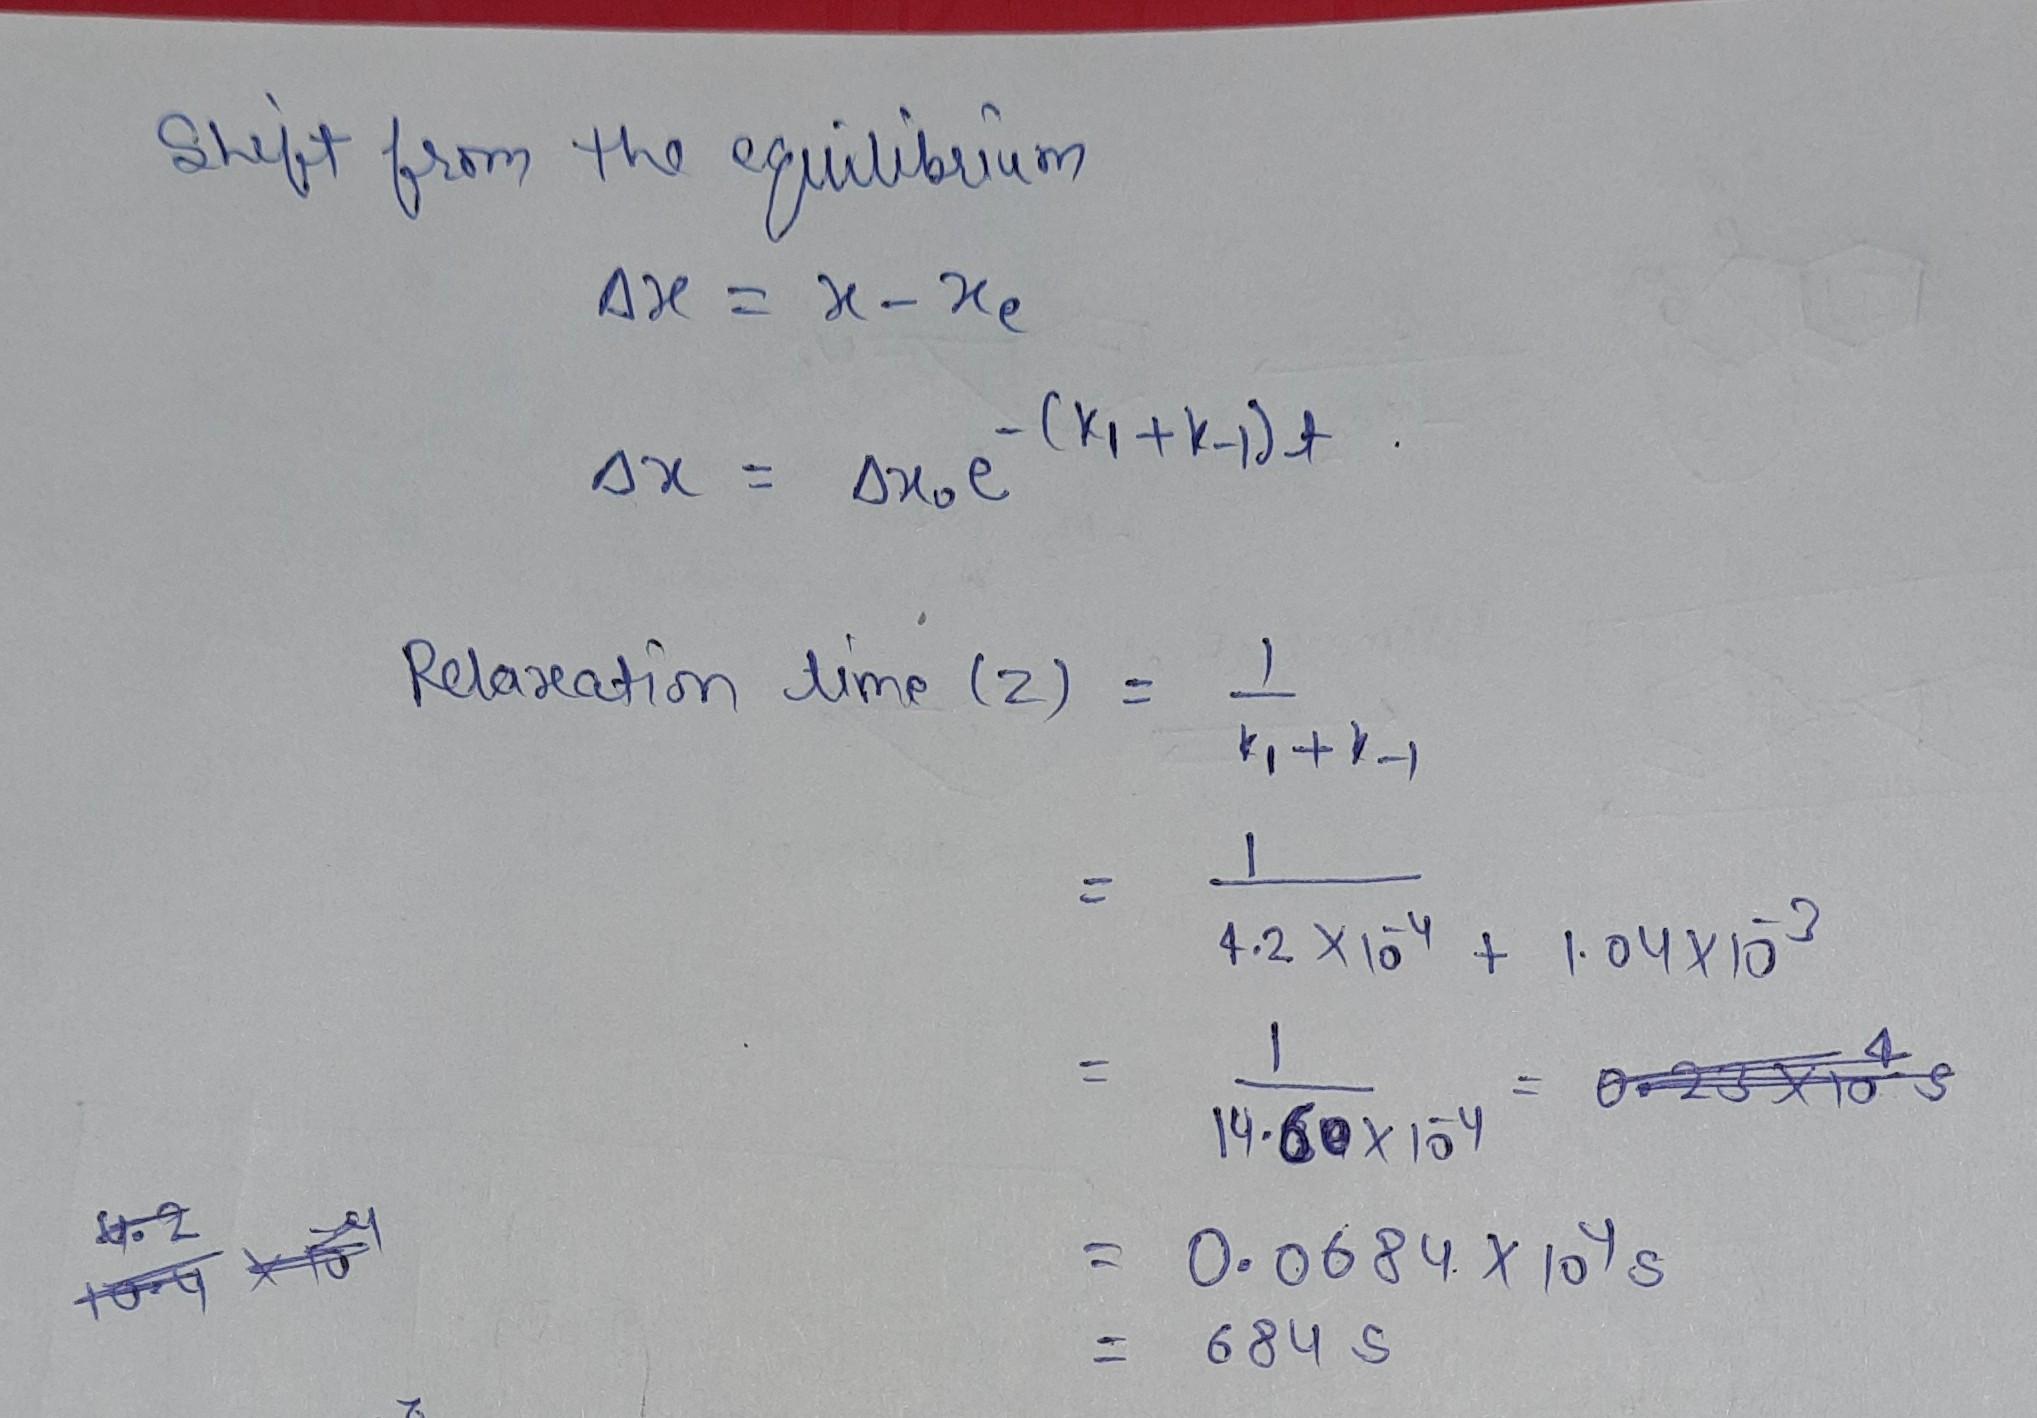 Shift from the equilibrium
Δx = x - xe
Δx = Δx₀e^-(k₁+k₋₁)t .
Relaxation time (τ) = 1/(k₁+k₋₁)
= 1/(4.2 × 10⁻⁴ + 1.04 × 10⁻³)
= 1/(14.60 × 10⁻⁴) = 0.23 × 10⁴ s
4.2/10.4 × 10⁻¹
= 0.0684 × 10⁴ s
= 684 s